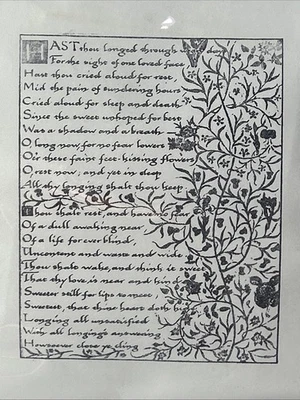 HAST thou longed through weary days
For the sight of one loved face
Hast thou cried aloud for rest,
Mid the pain of sundering hours
Cried aloud for sleep and death
Since the sweet unhoped for best
Was a shadow and a breath
O, long now, for no fear lowers
O'er these faint feet-kissing flowers
O, rest now; and yet in sleep
All thy longing shalt thou keep
Thou shalt rest, and have no fear
Of a dull awaking near
Of a life for ever blind,
Uncontent and waste and wide
Thou shalt wake, and think it sweet
That thy love is near and kind
Sweeter still for lips to meet;
Sweetest, that thine heart doth hide
Longing all unsatisfied
With all longing's answering
Howsoever close ye cling